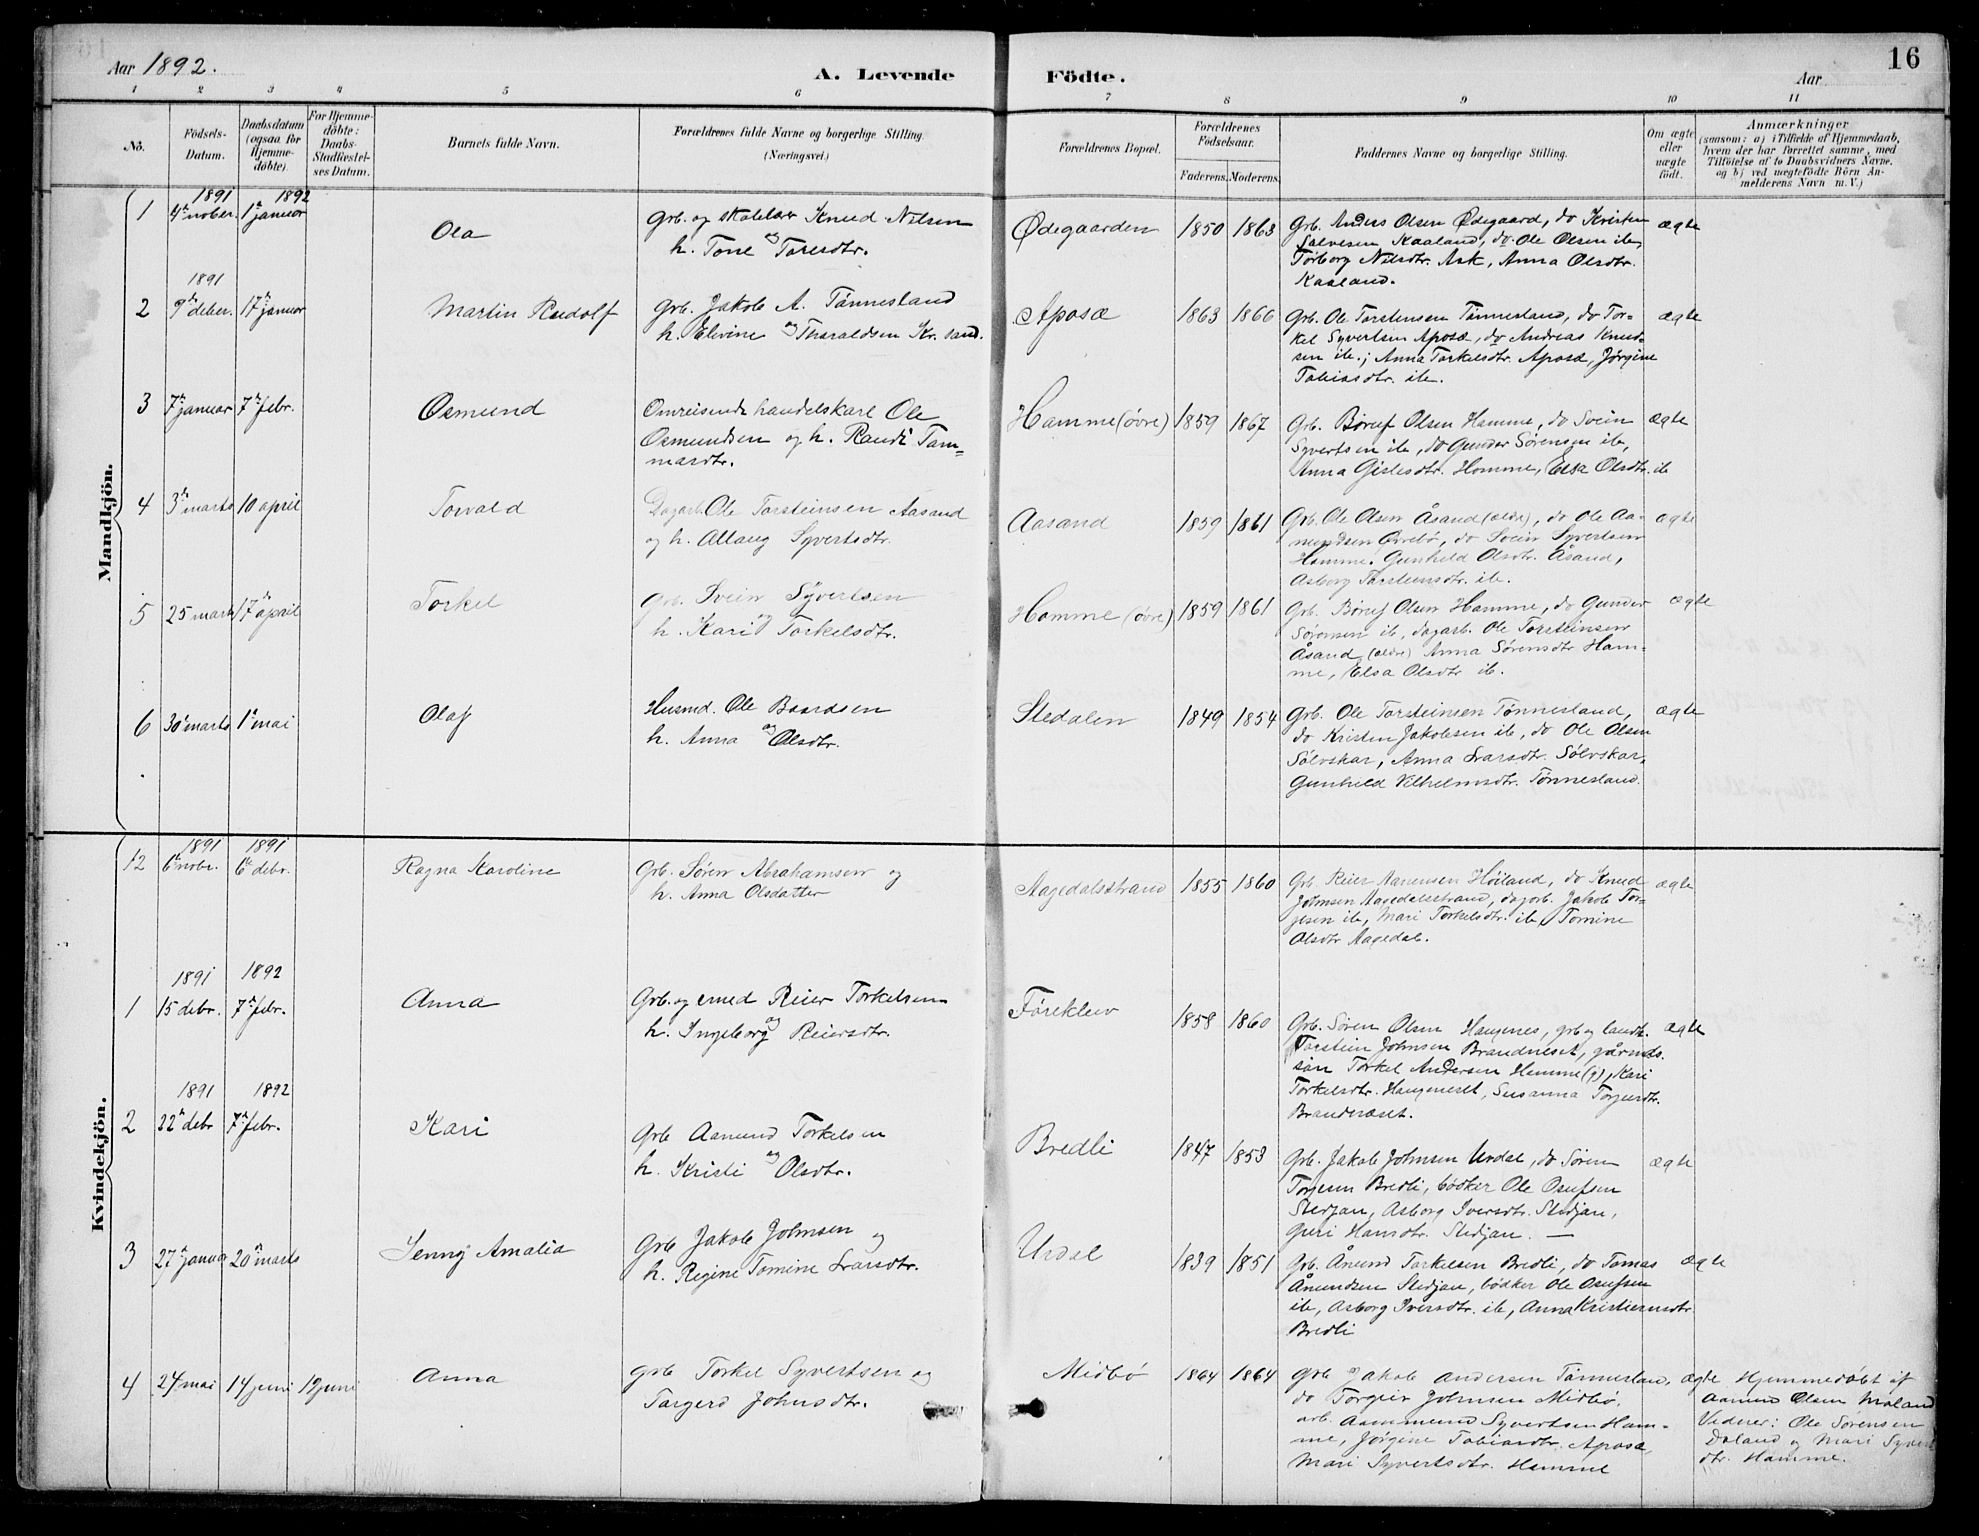 Aar 1892.
A. Levende Födte.
Aar
16
1 2 3 4 5 6 7 8 9 10 11
No.
Födsels-Datum.
Daabsdatum (ogsaa for Hjemme-döbte)
For Hjemme-döbte: Daabs-Stadfæstel-ses Datum.
Barnets fulde Navn.
Forældrenes fulde Navne og borgerlige Stilling (Næringsvei.)
Forældrenes Bopæl.
Forældrenes Födselsaar.
Faderens. Moderens.
Faddernes Navne og borgerlige Stilling.
Om ægte eller uægte födt.
Anmærkninger
(saasom: a) i Tilfælde af Hjemmedaab,
hvem der har forrettet samme, med
Tilföielse af to Daabsvidners Navne,
og b) ved uægtefödte Börn An-
melderens Navn m. V.)
Mandkjön.
1891 1892
1 4de nober. 1ste januar
Ola
Grb. og skolelær Knud Nilsen
og
h. Tone Taresdtr.
Ødegaarden 1850 1863
Grb. Anders Olsen Ødegaard, do Kristen
Salvesen Kaaland, do. Ole Olsen ib,
Torborg Nilsdtr. Ask, Anna Olsdtr.
Kaaland.
ægte
1891
2 9de deber. 17de januar
Martin Rudolf
Grb. Jakob A. Tønnesland
og
h. Elvine Tharaldsen Kr. sand.
Aposæ 1863 1866
Grb. Ole Torstensen Tønnesland, do Tor-
kel Syvertsen Aposæ, do Andreas Knud-
sen ib.; Anna Torkelsdtr. Aposæ, Jørgine
Tobiasdtr. ib.
ægte
3 7de januar 7de febr.
Osmund
Omreisende handelskarl Ole
Osmundsen og h. Randi Tam=
mardtr.
Homme (øvre) 1859 1867
Grb. Børuf Olsen Homme, do Svein
Syvertsen ib, do Gunder Sørensen ib,
Anna Gislesdtr. Homme, Elsa Olsdtr. ib
ægte
4 3de marts 10 april
Torvald
Dagarb. Ole Torsteinsen Aasand
og h. Allaug Syvertsdtr.
Aasand 1859 1861
Grb. Ole Olsen Åsand (øldre), do Ole Aa-
mundsen Øvrebø, do Svein Syvertsen
Homme. Gunhild Olsdtr. Åsand,
Asborg Torsteinsdtr. ib.
ægte
5 25 marts 17de april
Torkel
Grb. Svein Syvertsen
og
h. Kari Torkelsdtr.
Homme (øvre) 1859 1861
Grb. Børuf Olsen Homme, do Gunder
Sørensen ib, dagarb. Ole Torsteinsen
Åsand, (øldre) Anna Sørensdtr. Hom-
me, Elsa Olsdtr ib.
ægte
6 30te marts 1ste mai
Olaf
Husmd. Ole Baardsen
og
h. Anna Olsdtr.
Stedalen 1849 1854
Grb. Ole Torsteinsen Tønnesland,
do Kristen Jakobsen ib, do Ole Olsen
Sølvskar, Anna Larsdtr. Sølvskar,
Gunhild Vilhelmsdtr. Tønnesland.
ægte
Kvindekjön.
1891 1891
12 6te nobr. 6te debr.
Ragna Karoline
Grb. Søren Abrahamsen og
h. Anna Olsdatter
Aagedalsstrand 1855 1860
Grb. Reier Aanensen Høiland, do Knud
Johnsen Aagedalsstrand, dagarb. Jakob Tor-
jesen ib, Mari Torkelsdtr. ib, Tomine
Olsdtr Aagedal.
ægte
1891 1892
1 15 debr. 7de febr.
Anna
Grb. og smed Reier Torkelsen
og
h. Ingeborg Reiersdtr.
Føreklev 1858 1860
Grb. Søren Olsen Haugenes, grb og landh.
Torstein Johnsen Brandneset, gårmds.
søn Torkel Andersen Homme (g), Kari
Torkelsdtr. Haugeneset, Susanna Torjusdtr.
Brandneset.
ægte
1891 1892
2 22de debr 7de febr.
Kari
Grb Aamund Torkelsen
og
h. Kristi Olsdtr.
Bredli 1847 1853
Grb. Jakob Johnsen Urdal, do Søren
Torjesen Bredli, bødker Ole Osufsen
Stedjan, Asborg Iversdtr. Stedjan,
Guri Hansdtr. Stedjan. —
ægte
3 27de januar 20de marts
Jenny Amalia
Grb Jakob Johnsen og
h. Regine Tomine Larsdtr.
Urdal 1839 1851
Grb. Ånund Torkelsen Bredli, do Tomas
Ånundsen Stedjan, bødker Ole Osufsen
ib, Asborg Iversdtr. ib, Anna Kristiansdtr.
Bredli
ægte
4 24 mai 14 juni 19 juni
Anna
Grb Torkel Syvertsen og
Targerd Johnsdtr.
Midbø 1864 1864
Grb Jakob Andersen Tønnesland,
do Torgeir Johnsen Midbø,
arb. Aanmund Syvertsen Hom-
me, Jørgine Tobiasdtr. Aposæ,
Mari Syvertsdtr. Homme
ægte
Hjemmedøbt af
Aamund Olsen Moland
Vidner: Ole Sørensen
Daland og Mari Syverts
dtr. Homme.